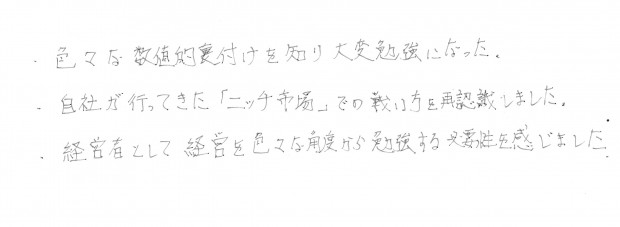 ・色々な数値的裏付けを知り大変勉強になった。
・自社が行ってきた「ニッチ市場」での戦い方を再認識しました。
・経営者として経営を色々な角度から勉強する必要性を感じました